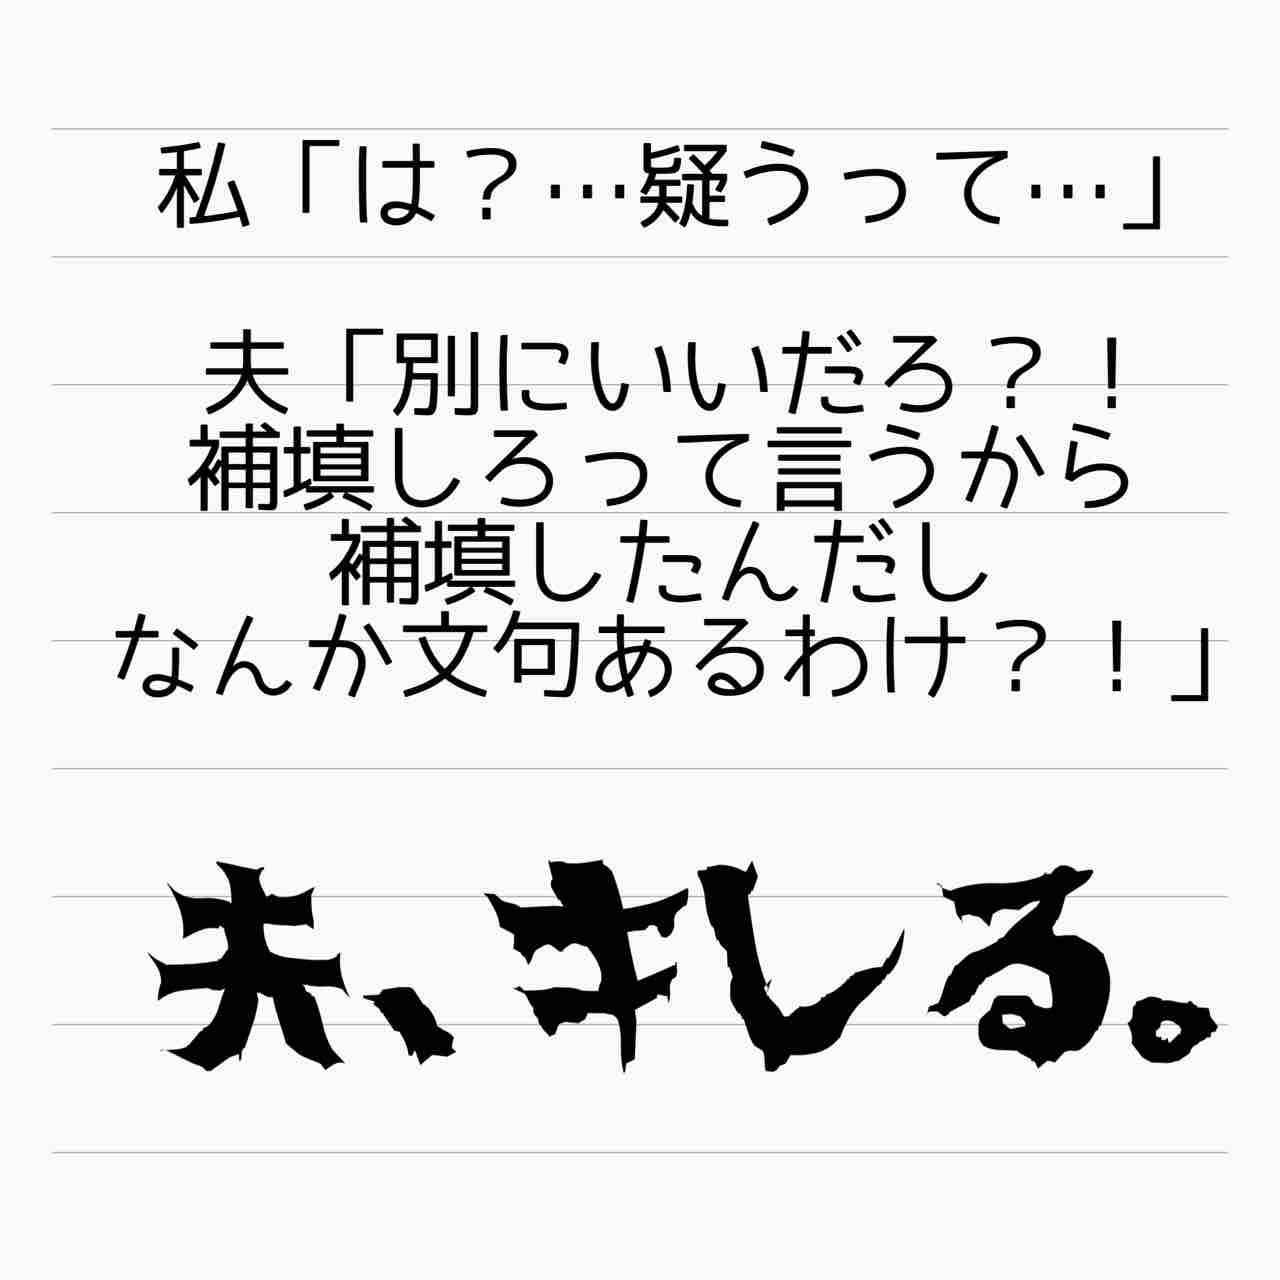 私「は？…疑うって…」
夫「別にいいだろ？！
補填しろって言うから
補填したんだし
なんか文句あるわけ？！」
夫、キレる。